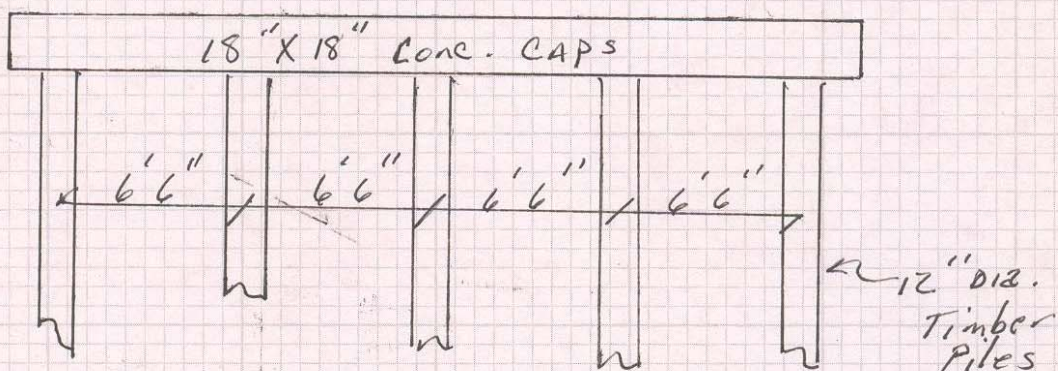 18"X18" Conc. CAPS
6'6" 6'6" 6'6" 6'6"
12" DIA.
Timber
Piles